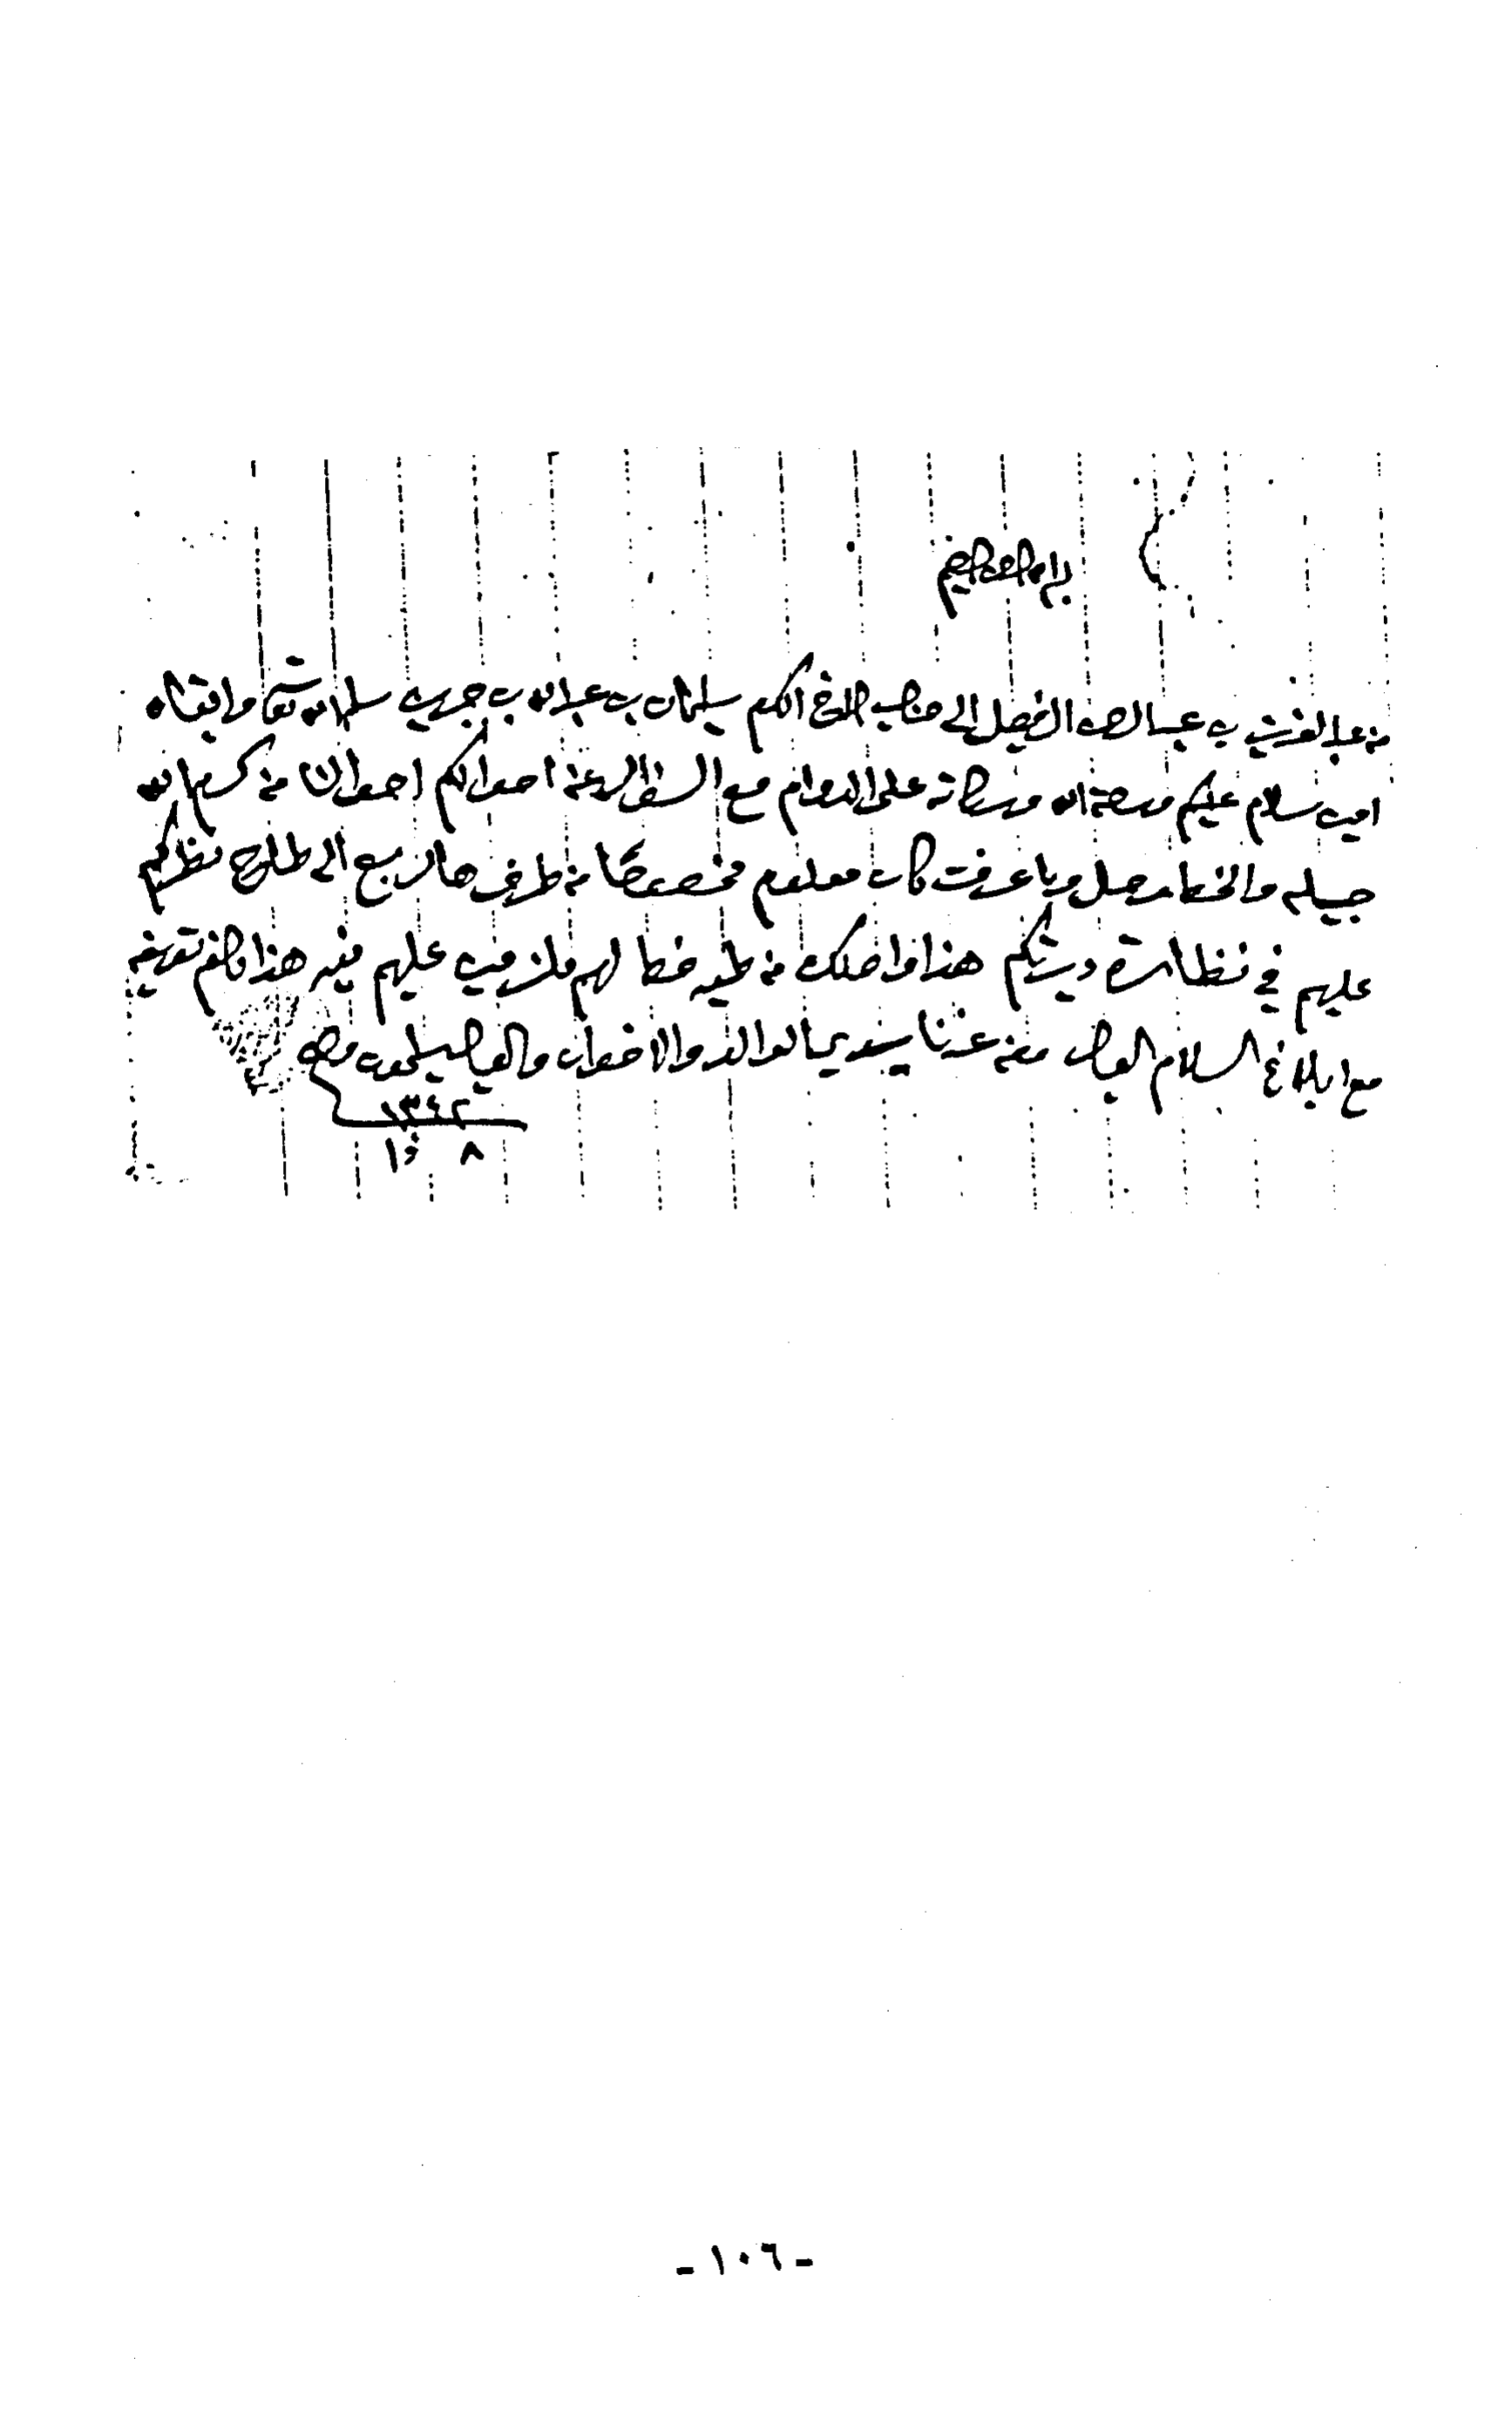 بسم الله الرحمن الرحيم
من عبد العزيز بن عبد الرحمن الفيصل إلى جناب الاخ المكرم سليمان بن عبد الله بن جمهور سلمه الله تعالى وابقاه
امين سلام عليكم ورحمة الله وبركاته على الدوام مع السؤال عن احوالكم احوالنا من كرم الله
جميله والخط وصل وما عرفت كان معلوم مخصوصًا من طرف هالربع الى نظركم
عليهم في ديرتكم هذا واصلك من خط لهم ملزمين عليهم فيه هذا مالزم تعريفه
مع ابلاغ السلام العيال ومن عندنا الوالد والاخوان والعيال يسلمون ودمتم
١٣٤٢
٨ ١٠
- ١٠٦ -